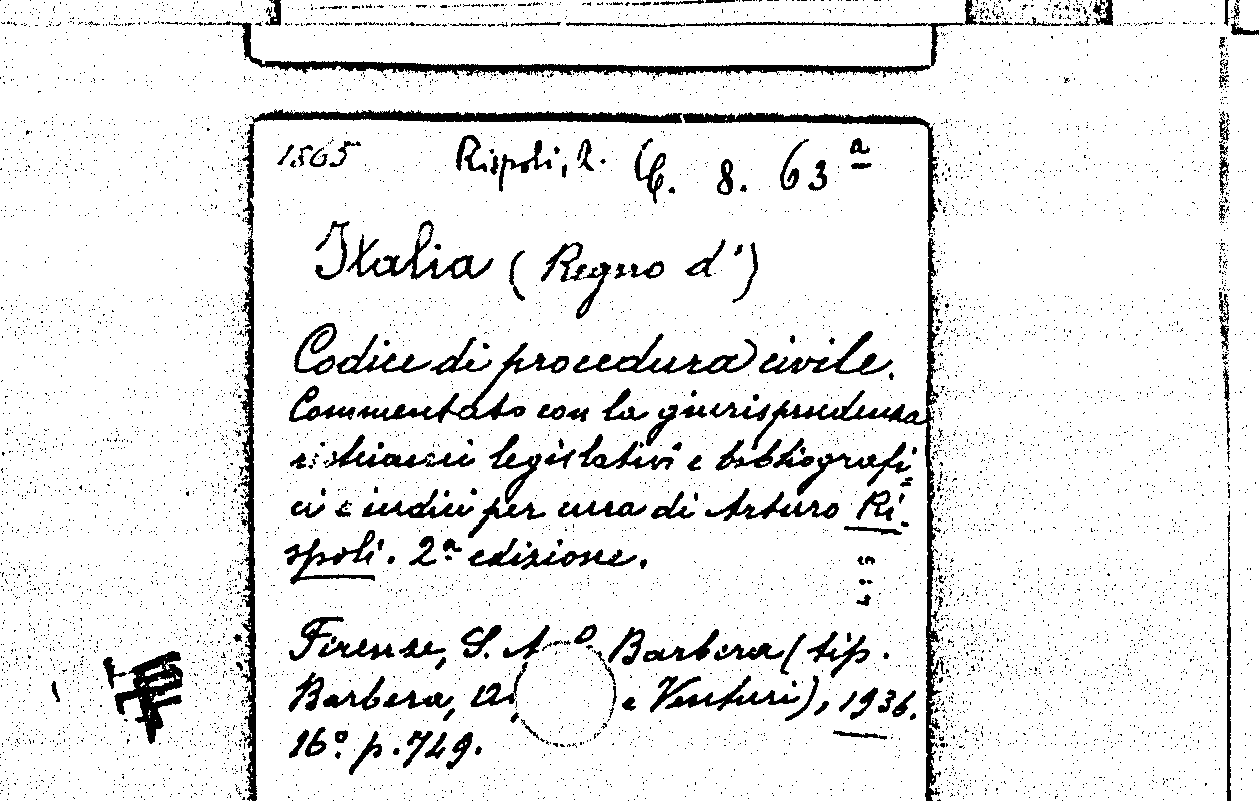 1865 Rispoli, A. C. 8. 63ª
Italia (Regno d')
Codice di procedura civile.
Commentato con la giurisprudenza
richiami legislativi e bibliografi=
ci e indici per cura di Arturo Ri.
spoli. 2ª edizione.
Firenze, S. A. Barbera (tip.
Barbera, e Venturi), 1936.
16º p. 749.